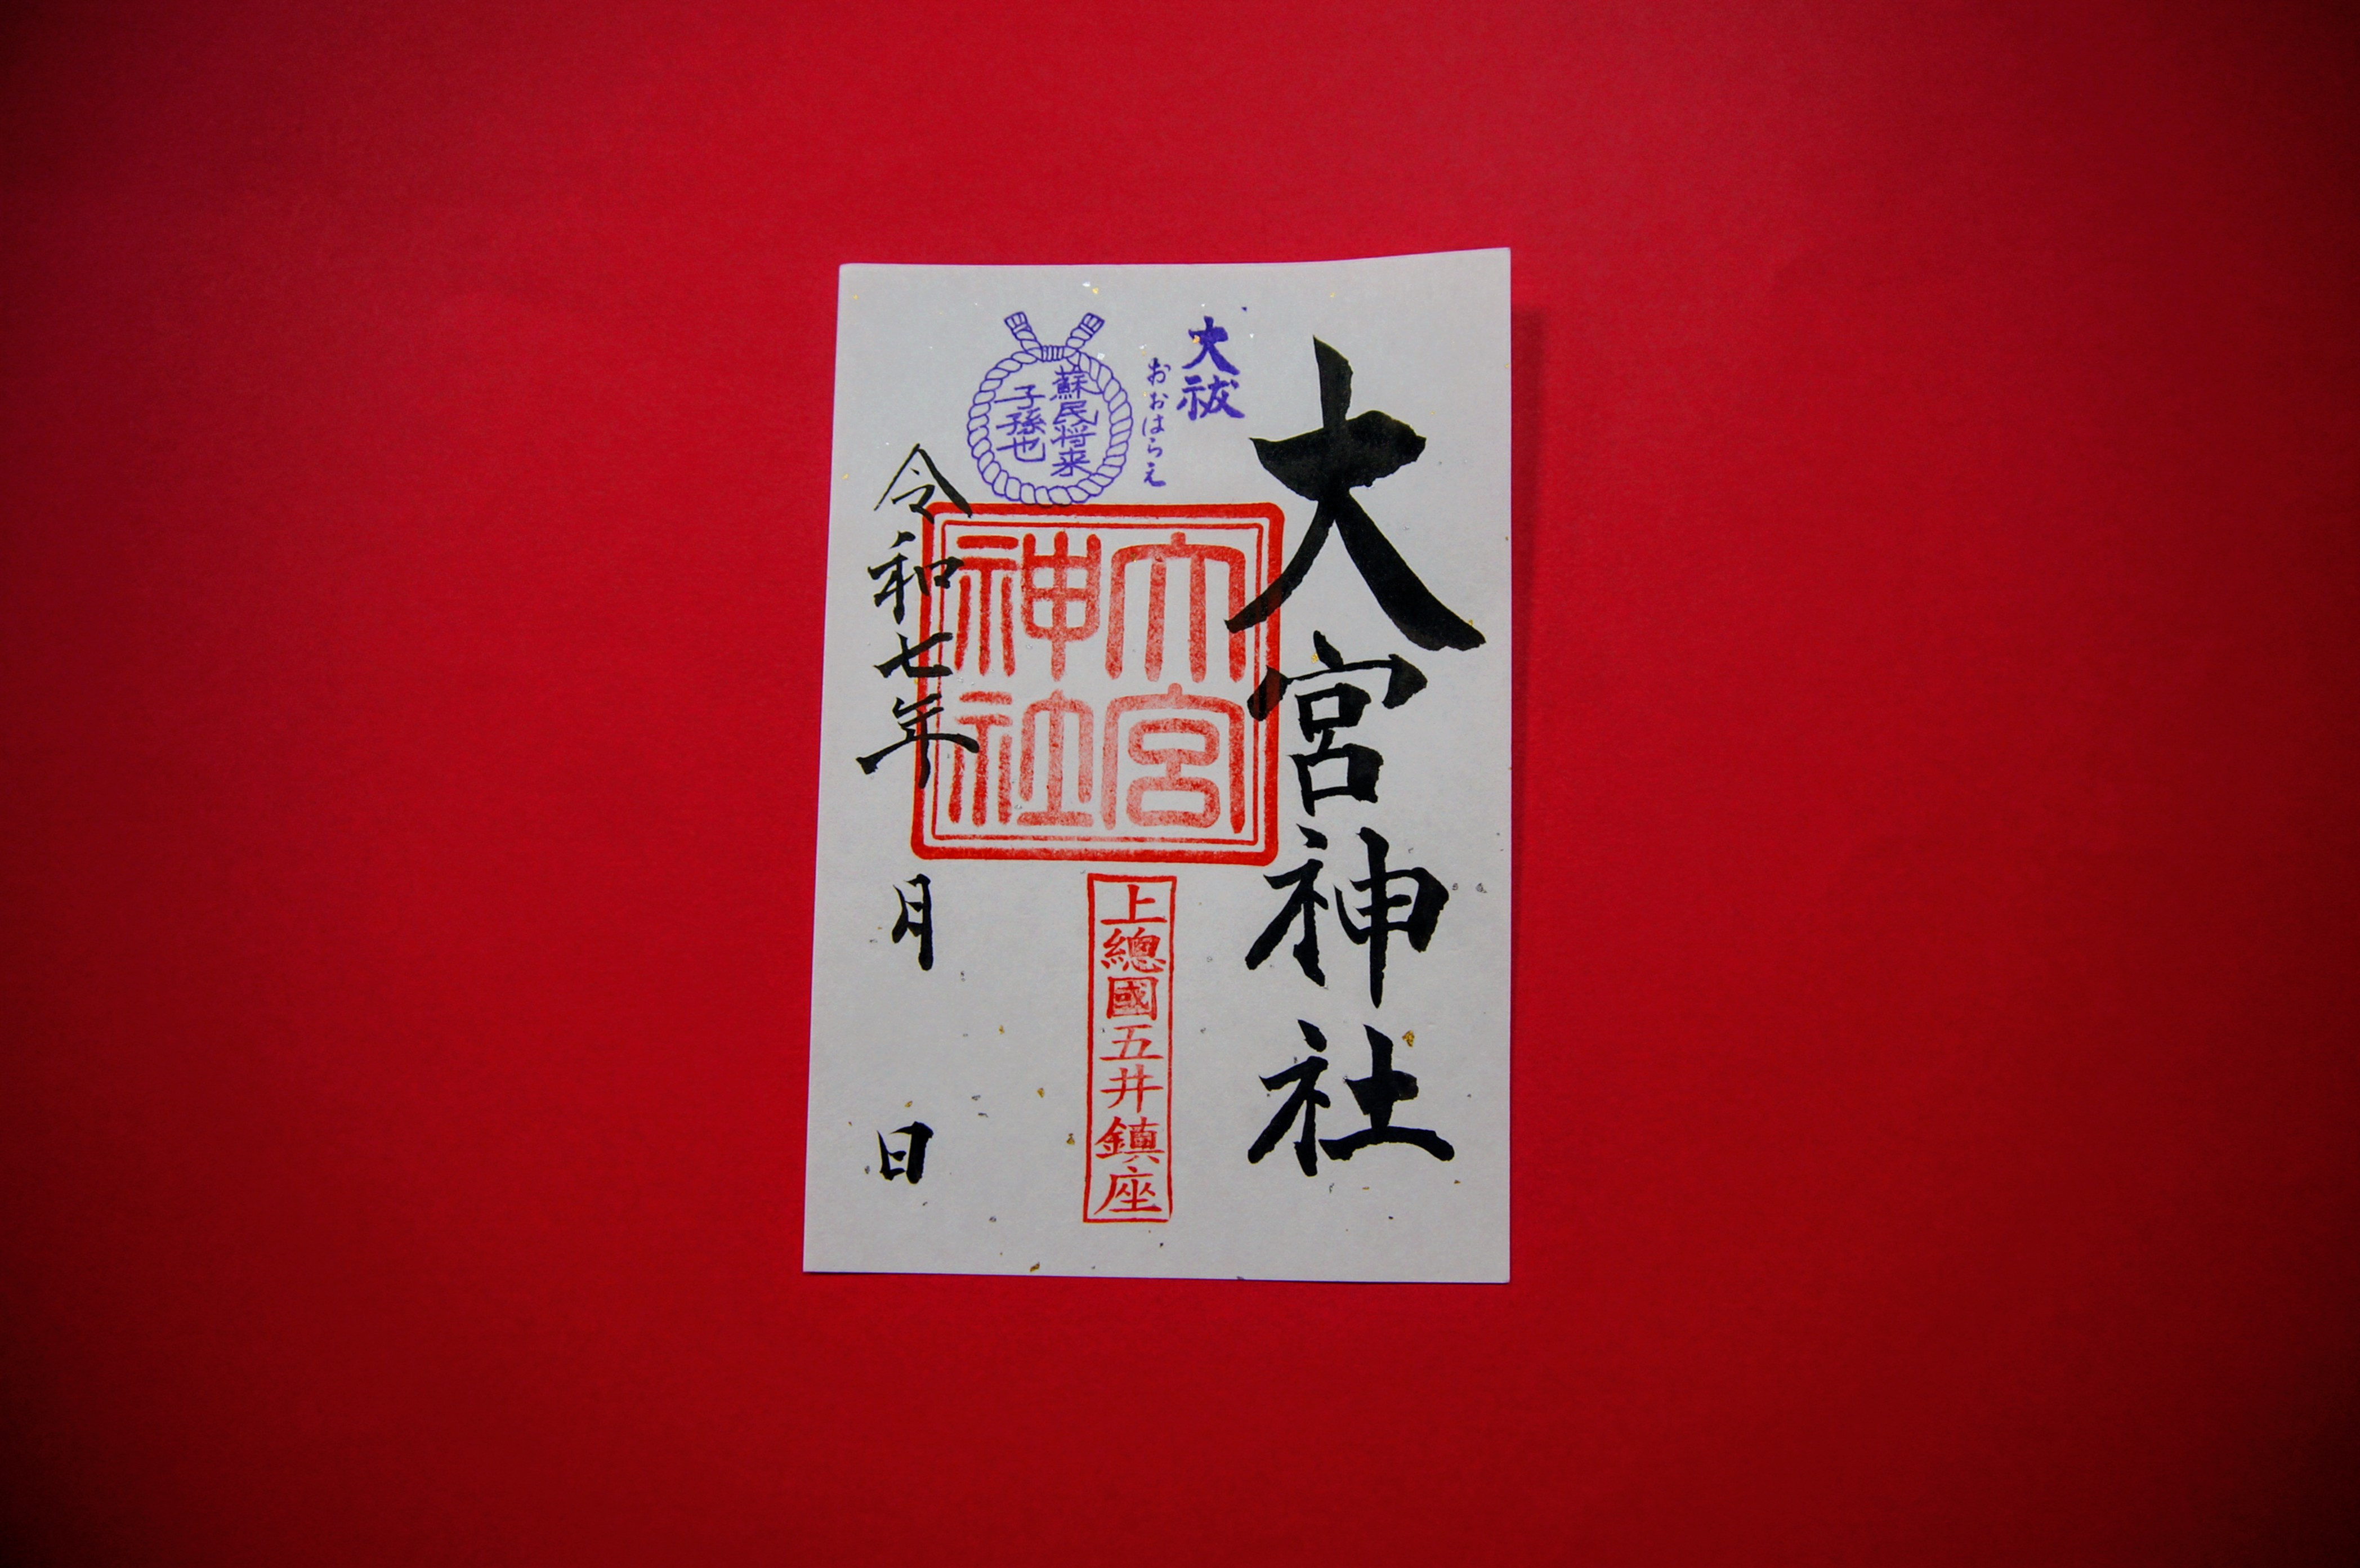 大宮神社
大祓
おおはらえ
蘇民将来
子孫也
大宮
神社
上總國五井鎮座
令和七年 月 日